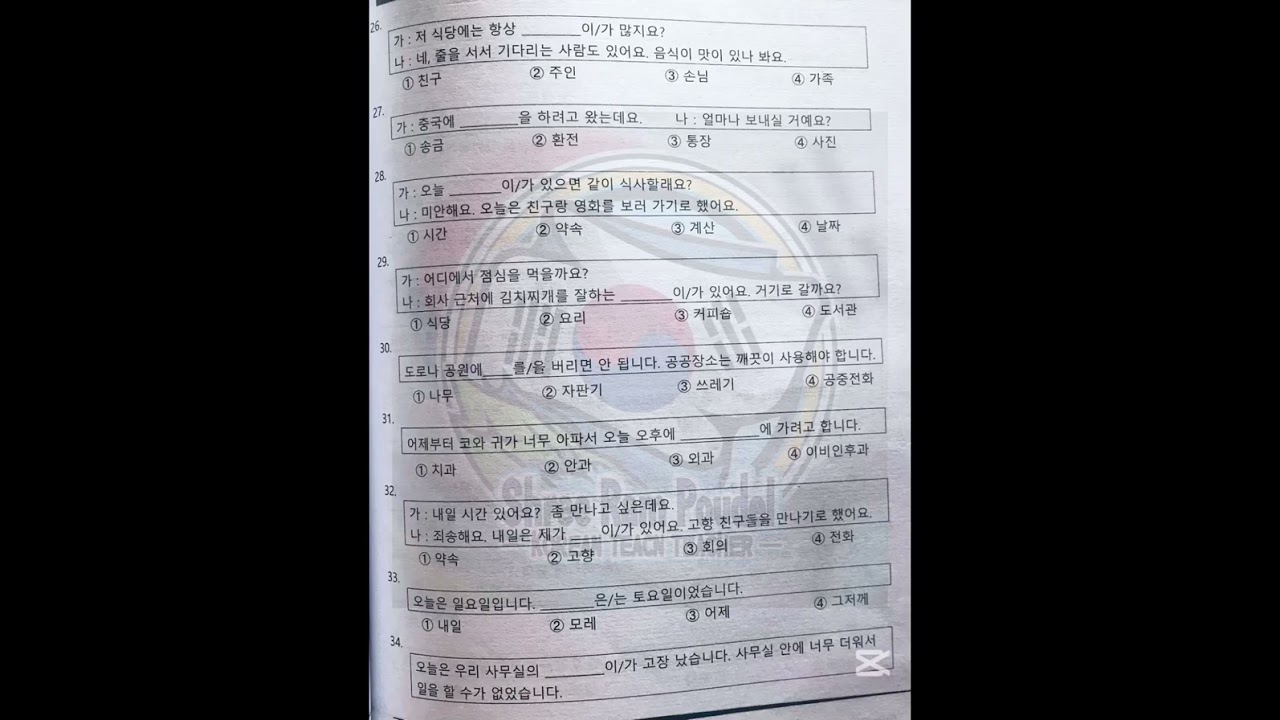 26.
가 : 저 식당에는 항상 ________이/가 많지요?
나 : 네, 줄을 서서 기다리는 사람도 있어요. 음식이 맛이 있나 봐요.
① 친구 ② 주인 ③ 손님 ④ 가족
27.
가 : 중국에 ________을 하려고 왔는데요. 나 : 얼마나 보내실 거예요?
① 송금 ② 환전 ③ 통장 ④ 사진
28.
가 : 오늘 _______이/가 있으면 같이 식사할래요?
나 : 미안해요. 오늘은 친구랑 영화를 보러 가기로 했어요.
① 시간 ② 약속 ③ 계산 ④ 날짜
29.
가 : 어디에서 점심을 먹을까요?
나 : 회사 근처에 김치찌개를 잘하는 _______이/가 있어요. 거기로 갈까요?
① 식당 ② 요리 ③ 커피숍 ④ 도서관
30.
도로나 공원에____를/을 버리면 안 됩니다. 공공장소는 깨끗이 사용해야 합니다.
① 나무 ② 자판기 ③ 쓰레기 ④ 공중전화
31.
어제부터 코와 귀가 너무 아파서 오늘 오후에 ___________에 가려고 합니다.
① 치과 ② 안과 ③ 외과 ④ 이비인후과
32.
가 : 내일 시간 있어요? 좀 만나고 싶은데요.
나 : 죄송해요. 내일은 제가 ____이/가 있어요. 고향 친구들을 만나기로 했어요.
① 약속 ② 고향 ③ 회의 ④ 전화
33.
오늘은 일요일입니다. _______은/는 토요일이었습니다.
① 내일 ② 모레 ③ 어제 ④ 그저께
34.
오늘은 우리 사무실의 ________이/가 고장 났습니다. 사무실 안에 너무 더워서
일을 할 수가 없었습니다.
Shree Ram Paudel